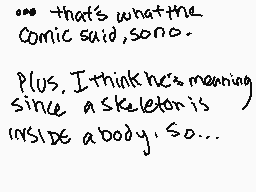 ... that's what the
comic said, so no.
Plus, I think he's meaning
since a skeleton is
INSIDE a body. So...